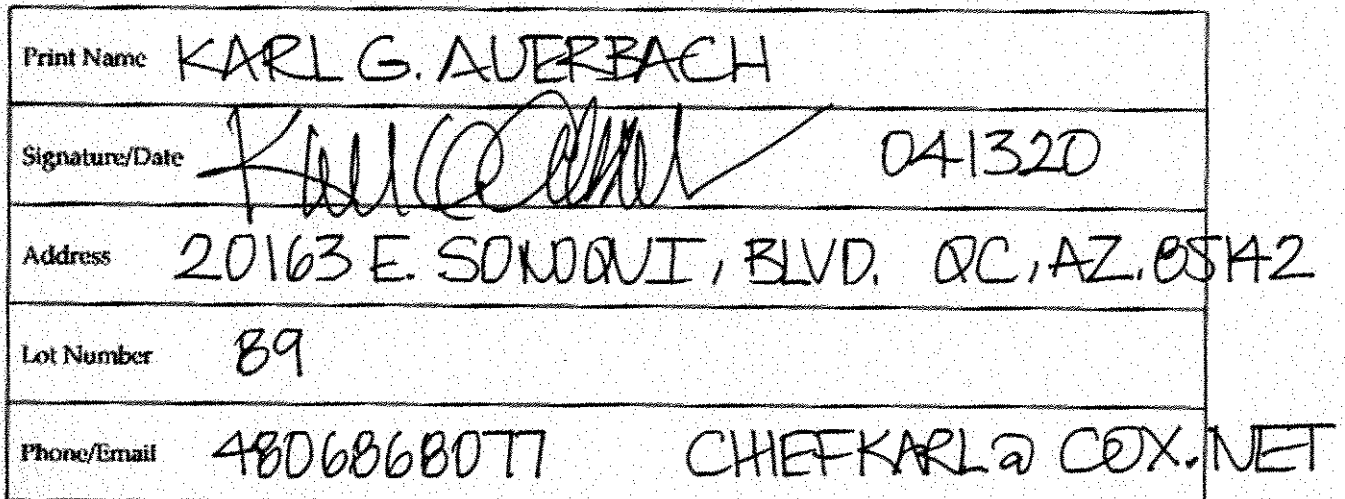 Print Name KARL G. AUERBACH
Signature/Date 041320
Address 20163 E. SONOQUI, BLVD. QC, AZ. 85142
Lot Number 89
Phone/Email 4806868077 CHIEFKARL@COX.NET